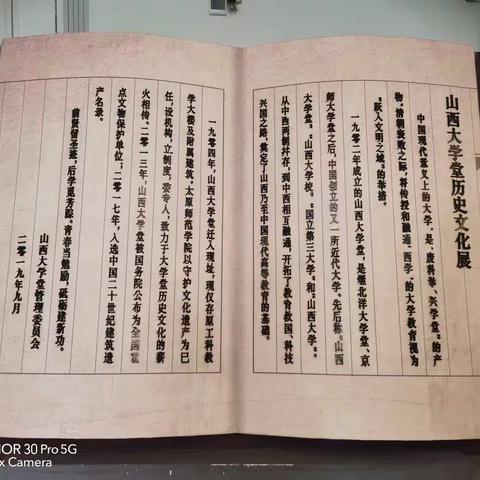 山西大学堂历史文化展
中国现代意义上的大学，是“废科举、兴学堂”的产
物。清朝衰败之际，将传授和融通“西学”的大学教育视为
“跃入文明之域”的举措。
一九〇二年成立的山西大学堂，是继北洋大学堂、京
师大学堂之后，中国创立的又一所近代大学。先后称“山西
大学堂”、“山西大学校”、“国立第三大学”和“山西大学”。
从中西两制并存，到中西相互融通，开拓了教育救国、科技
兴国之路，奠定了山西乃至中国现代高等教育的基础。
一九〇四年，山西大学堂迁入现址，现仅存原工科教
学大楼及附属建筑。太原师范学院以守护文化遗产为己
任，设机构，立制度，委专人，致力于大学堂历史文化的薪
火相传。二〇一三年，山西大学堂被国务院公布为全国重
点文物保护单位；二〇一七年，入选中国二十世纪建筑遗
产名录。
前贤留圣迹，后学觅芳踪。青春当勉励，砥砺建新功。
山西大学堂管理委员会
二〇一九年九月
OR 30 Pro 5G
x Camera